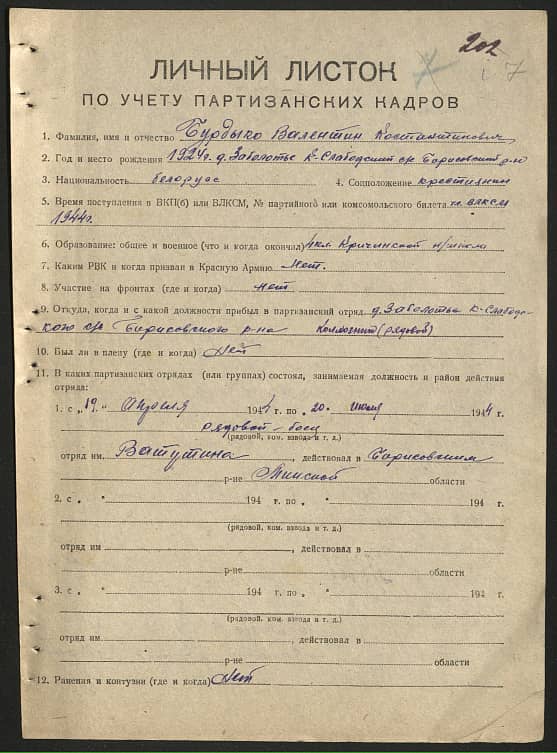 202
7
ЛИЧНЫЙ ЛИСТОК
ПО УЧЕТУ ПАРТИЗАНСКИХ КАДРОВ
1. Фамилия, имя и отчество Бурдыко Валентин Константинович
2. Год и место рождения 1924г. д. Заболотье К-Слободский с/с Борисовский р-н
3. Национальность белорус 4. Соцположение крестьянин
5. Время поступления в ВКП(б) или ВЛКСМ, № партийного или комсомольского билета чл. ВЛКСМ
1944г.
6. Образование: общее и военное (что и когда окончил) 4кл.
7. Каким РВК и когда призван в Красную Армию Нет.
8. Участие на фронтах (где и когда) нет
9. Откуда, когда и с какой должности прибыл в партизанский отряд. д. Заболотье К-Слободс-
кого с/с Борисовского р-на колхозник (рядовой)
10. Был ли в плену (где и когда) Нет
11. В каких партизанских отрядах (или группах) состоял, занимаемая должность и район действия
отряда:
1. с „19„ Апреля 1944 г. по „ 20„ июля 1944 г.
рядовой-боец
(рядовой, ком. взвода и т. д.)
отряд им. Ватутина, действовал в Борисовским
р-не Минской области
2. с „ " 194 г. по „ " 194 г.
(рядовой, ком. взвода и т. д.)
отряд им , действовал в
р-не области
3. с „ " 194 г. по „ " 194 г.
(рядовой, ком. взвода и т. д.)
отряд им. , действовал в
р-не области
12. Ранения и контузии (где и когда) Нет